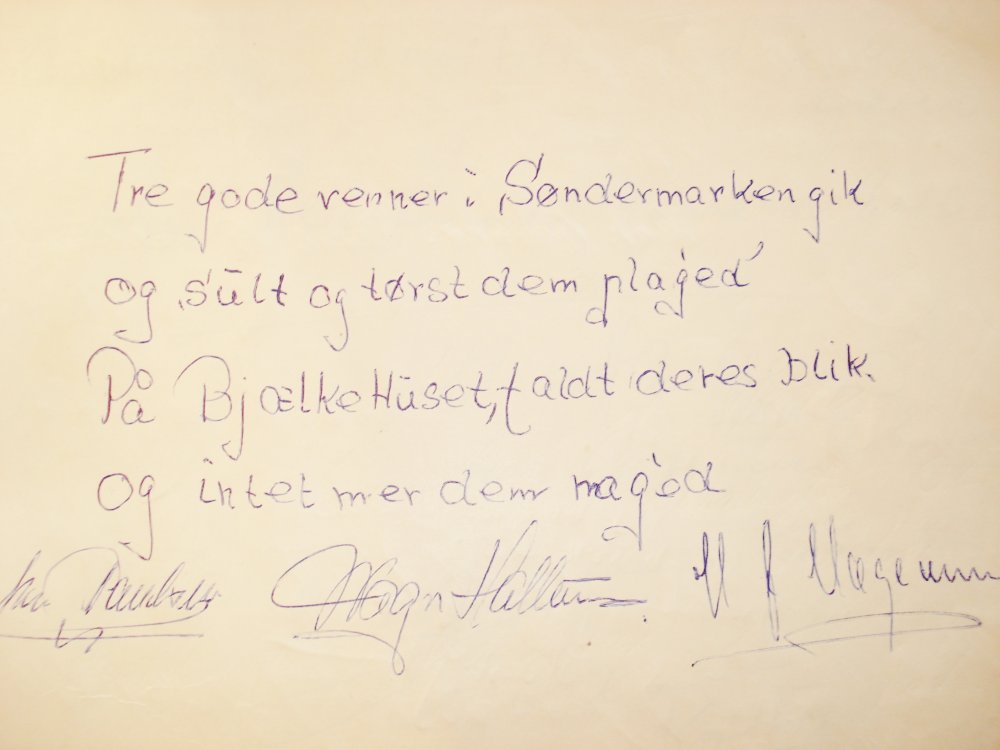 Tre gode venner i Søndermarken gik
og sült og tørst dem plaged'
På BjælkeHüset, faldt deres blik.
og intet mer dem mag'ed